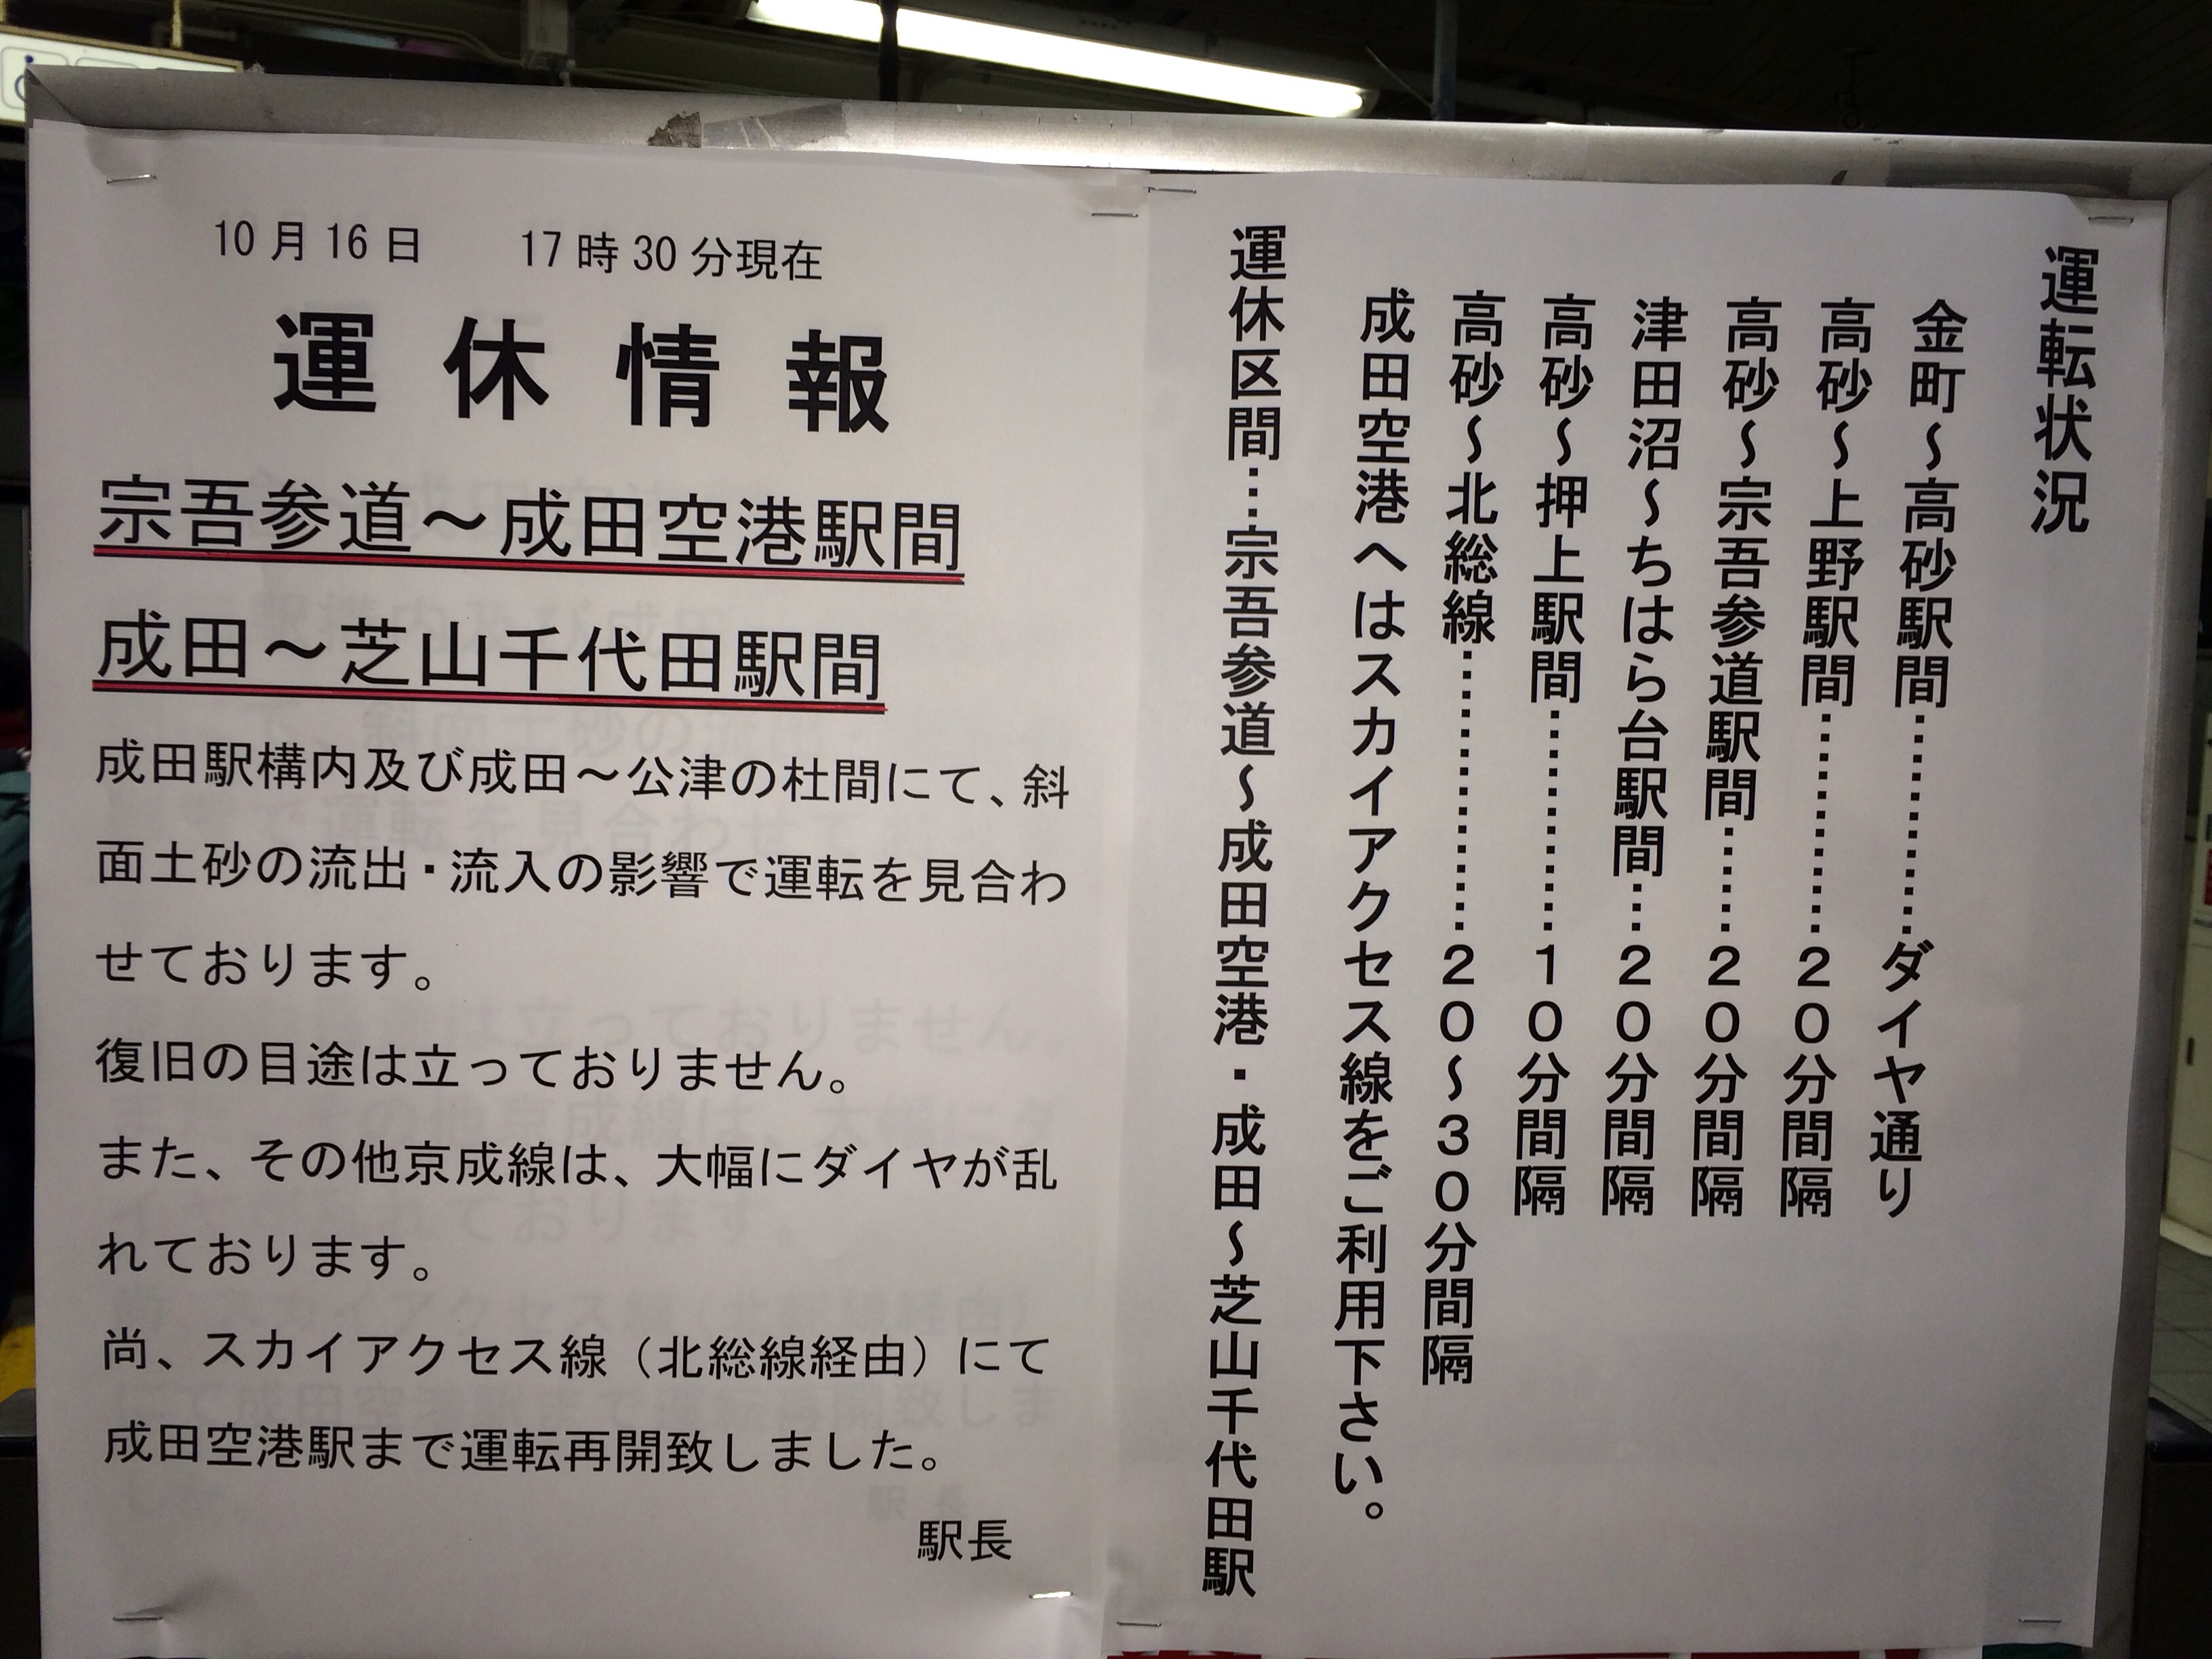 10月16日　17時30分現在
運休情報
宗吾参道～成田空港駅間
成田～芝山千代田駅間
成田駅構内及び成田～公津の杜間にて、斜
面土砂の流出・流入の影響で運転を見合わ
せております。
復旧の目途は立っておりません。
また、その他京成線は、大幅にダイヤが乱
れております。
尚、スカイアクセス線（北総線経由）にて
成田空港駅まで運転再開致しました。
駅長
運転状況
金町～高砂駅間…………ダイヤ通り
高砂～上野駅間…………２０分間隔
高砂～宗吾参道駅間……２０分間隔
津田沼～ちはら台駅間…２０分間隔
高砂～押上駅間…………１０分間隔
高砂～北総線……………２０～３０分間隔
成田空港へはスカイアクセス線をご利用下さい。
運休区間…宗吾参道～成田空港・成田～芝山千代田駅